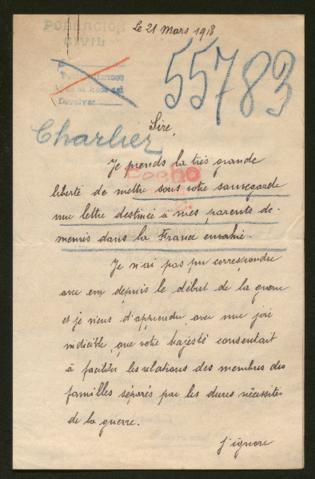 POBLACION
CIVIL
Le 21 Mars 1918
55783
Charlier
Sire,
Je prends la très grande
liberté de mettre sous votre sauvegarde
une lettre destinée à mes parents de-
meurés dans la France envahie.
Je n'ai pas pu correspondre
avec eux depuis le début de la guerre
et je viens d'apprendre, avec une joie
indicible, que votre Majesté consentait
à faciliter les relations des membres des
familles séparés par les dures nécessités
de la guerre.
J'ignore